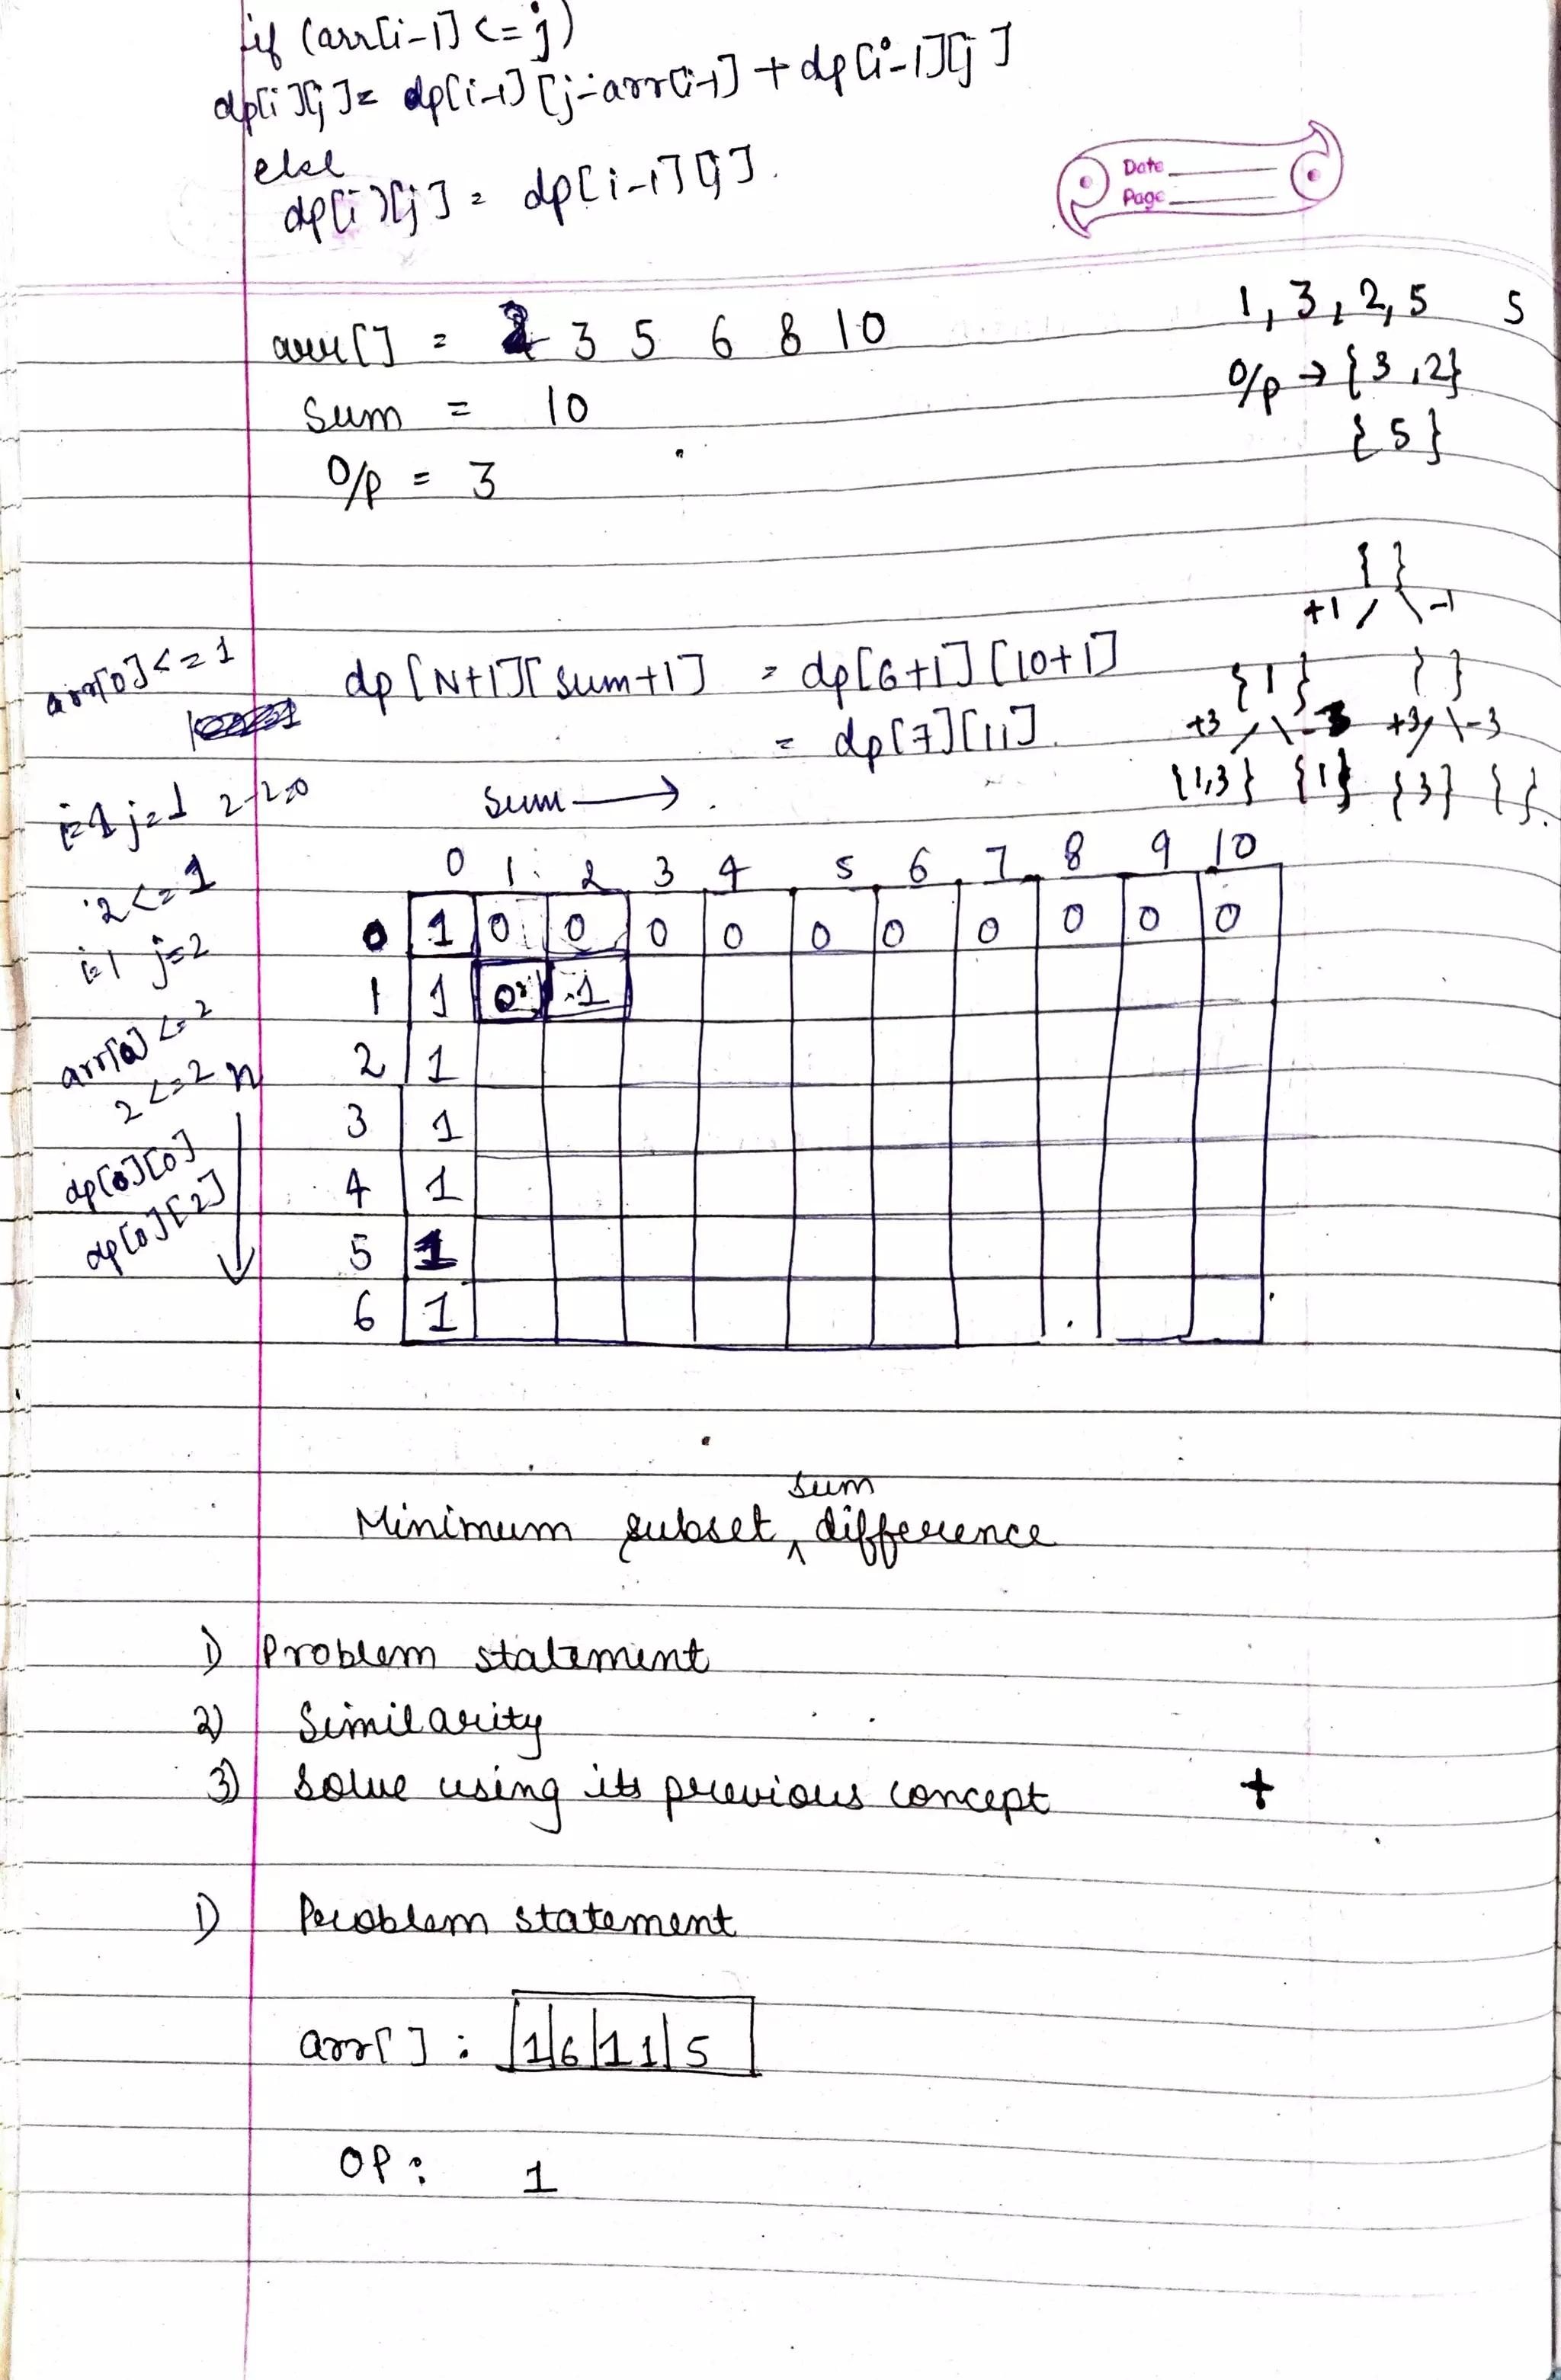 if (arr[i-1] <= j)
dp[i][j] = dp[i-1][j-arr[i-1] + dp[i-1][j]
else
dp[i][j] = dp[i-1][j].
Date
Page
arr[] = 2 3 5 6 8 10
sum = 10
O/p = 3
1, 3, 2, 5 5
O/p → {3, 2}
{5}
{ }
+1 / \ -1
{1} { }
+3 / \ -3 +3 / \ -3
{1,3} {1} {3} { }.
arr[0] <= 1
i=1 j=1 2-2=0
2 <= 1
i=1 j=2
arr[0] <= 2
2 <= 2
dp[0][0]
dp[0][2]
dp[N+1][sum+1] = dp[6+1][10+1]
= dp[7][11].
sum →
n
0 1 2 3 4 5 6 7 8 9 10
0 1 0 0 0 0 0 0 0 0 0 0
1 1 0 1
2 1
3 1
4 1
5 1
6 1
Minimum subset sum difference
1) Problem statement
2) Similarity
3) Solve using its previous concept +
1) Problem statement
arr[] : 1|6|11|5
OP : 1